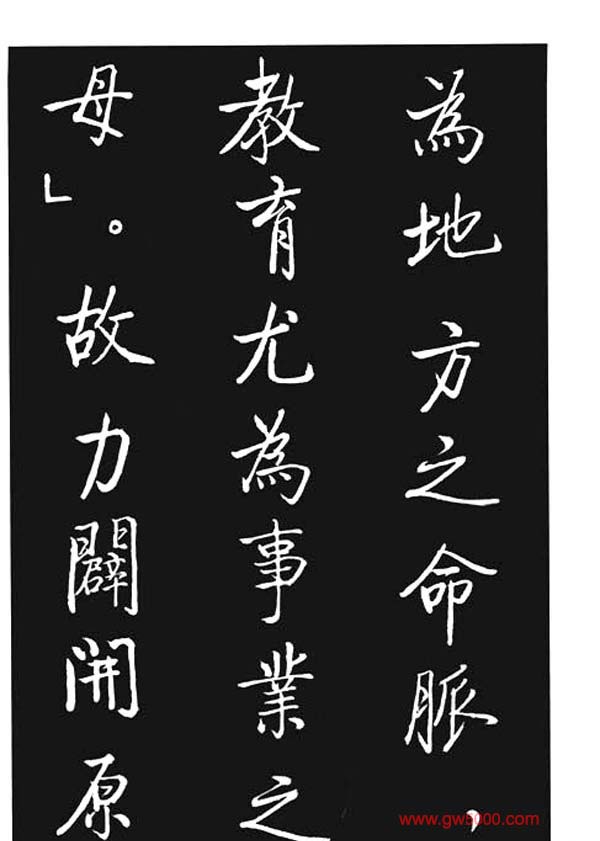 為地方之命脈，
教育尤為事業之
母」。故力闢開原
www.gw5000.com